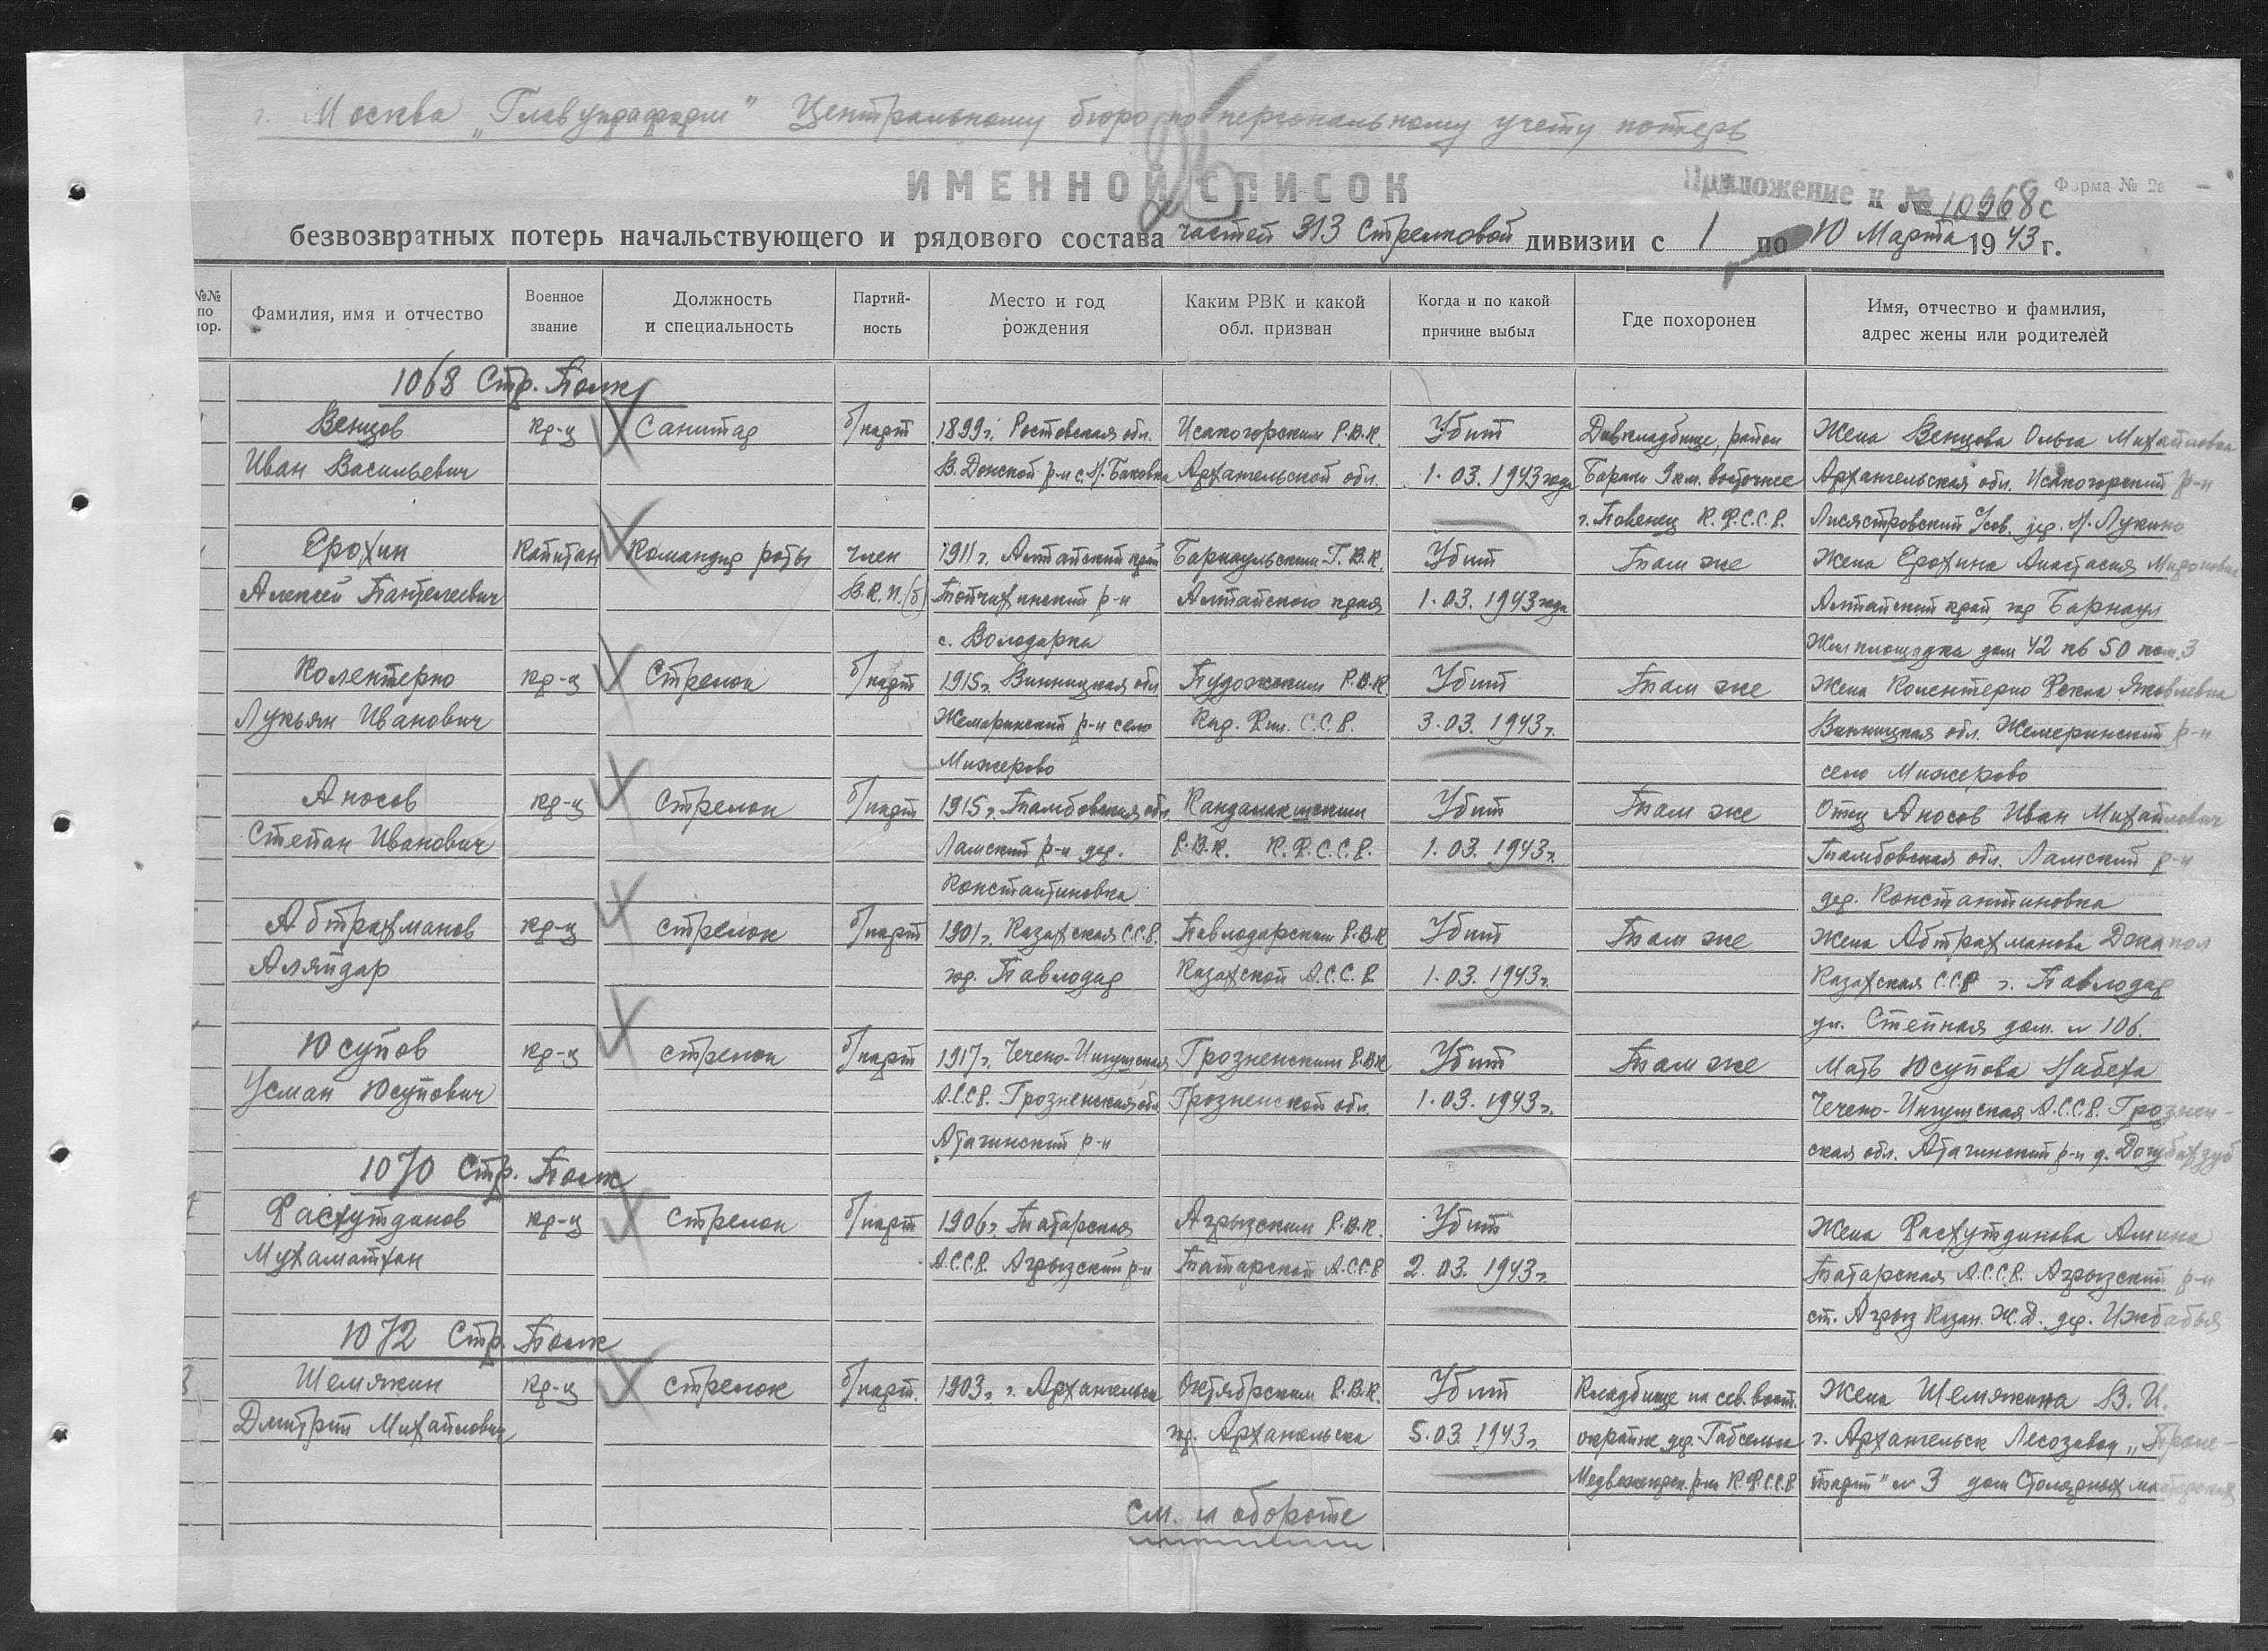 г. Москва „Главупраформ" Центральному бюро по персональному учету потерь
ИМЕННОЙ СПИСОК
Приложение к № 10968с
Форма № 2а
безвозвратных потерь начальствующего и рядового состава частей 313 Стрелковой дивизии с 1 по 10 Марта 1943 г.
№№ по пор.
Фамилия, имя и отчество
Военное звание
Должность и специальность
Партий-ность
Место и год рождения
Каким РВК и какой обл. призван
Когда и по какой причине выбыл
Где похоронен
Имя, отчество и фамилия, адрес жены или родителей
1068 Стр. Полк
Венцов кр-ц Санитар б/парт 1899 г. Ростовская обл. Исакогорским Р.В.К. Убит Дивкладбище, район Жена Венцова Ольга Михайловна
Иван Васильевич В. Донской р-н с. М. Баковка Архангельской обл. 1.03.1943 года Бараки 9 км. восточнее Архангельская обл. Исакогорский р-н
г. Повенец К.Ф.С.С.Р. Лисестровский с/сов. дер. М. Лукино
Ерохин Капитан Командир роты член 1911 г. Алтайский край Барнаульским Г.В.К. Убит Там же Жена Ерохина Анастасия Мироновна
Алексей Пантелеевич В.К.П.(б) Топчихинский р-н Алтайского края 1.03.1943 года Алтайский край, гор. Барнаул
с. Володарка Жилплощадка дом 42 кв 50 ком. 3
Колентерно кр-ц Стрелок б/парт 1915 г. Винницкая обл Пудожским Р.В.К. Убит Там же Жена Колентерно Фекла Яковлевна
Лукьян Иванович Жемеринский р-н село Кар. Фин. С.С.Р. 3.03.1943 г. Винницкая обл. Жемеринский р-н
Мижерово село Мижерово
Аносов кр-ц Стрелок б/парт 1915 г. Тамбовская обл. Кандалакшским Убит Там же Отец Аносов Иван Михайлович
Степан Иванович Ламский р-н дер. Р.В.К. К.Ф.С.С.Р. 1.03.1943 г. Тамбовская обл. Ламский р-н
Константиновка дер. Константиновка
Абтрахманов кр-ц стрелок б/парт 1901 г. Казахская С.С.Р. Павлодарским Р.В.К. Убит Там же Жена Абтрахманова
Аляйдар гор. Павлодар Казахской А.С.С.Р. 1.03.1943 г. Казахская С.С.Р г. Павлодар
ул. Степная дом. № 106.
Юсупов кр-ц стрелок б/парт 1917 г. Чечено-Ингушская Грозненским Р.В.К. Убит Там же Мать Юсупова
Усман Юсупович А.С.С.Р. Грозненская обл Грозненской обл. 1.03.1943 г. Чечено-Ингушская А.С.С.Р. Грознен-
Атагинский р-н ская обл. Атагинский р-н д.
1070 Стр. Полк
Фасхутдинов кр-ц стрелок б/парт 1906 г. Татарская Агрызским Р.В.К. Убит Жена Фасхутдинова Амина
Мухаматхан А.С.С.Р. Агрызский р-н Татарской А.С.С.Р 2.03.1943 г. Татарская А.С.С.Р. Агрызский р-н
ст. Агрыз Казан. Ж.Д. дер. Ижбабья
1072 Стр. Полк
Шемякин кр-ц стрелок б/парт. 1903 г. г. Архангельск Октябрьским Р.В.К. Убит Кладбище на сев. вост. Жена Шемякина В.И.
Дмитрий Михайлович гор. Архангельска 5.03.1943 г. окраине дер. Габсельга г. Архангельск Лесозавод „Проле-
Медвежьегорск. р-на К.Ф.С.С.Р тарий" № 3 дом Столярных мастерских
См. на обороте